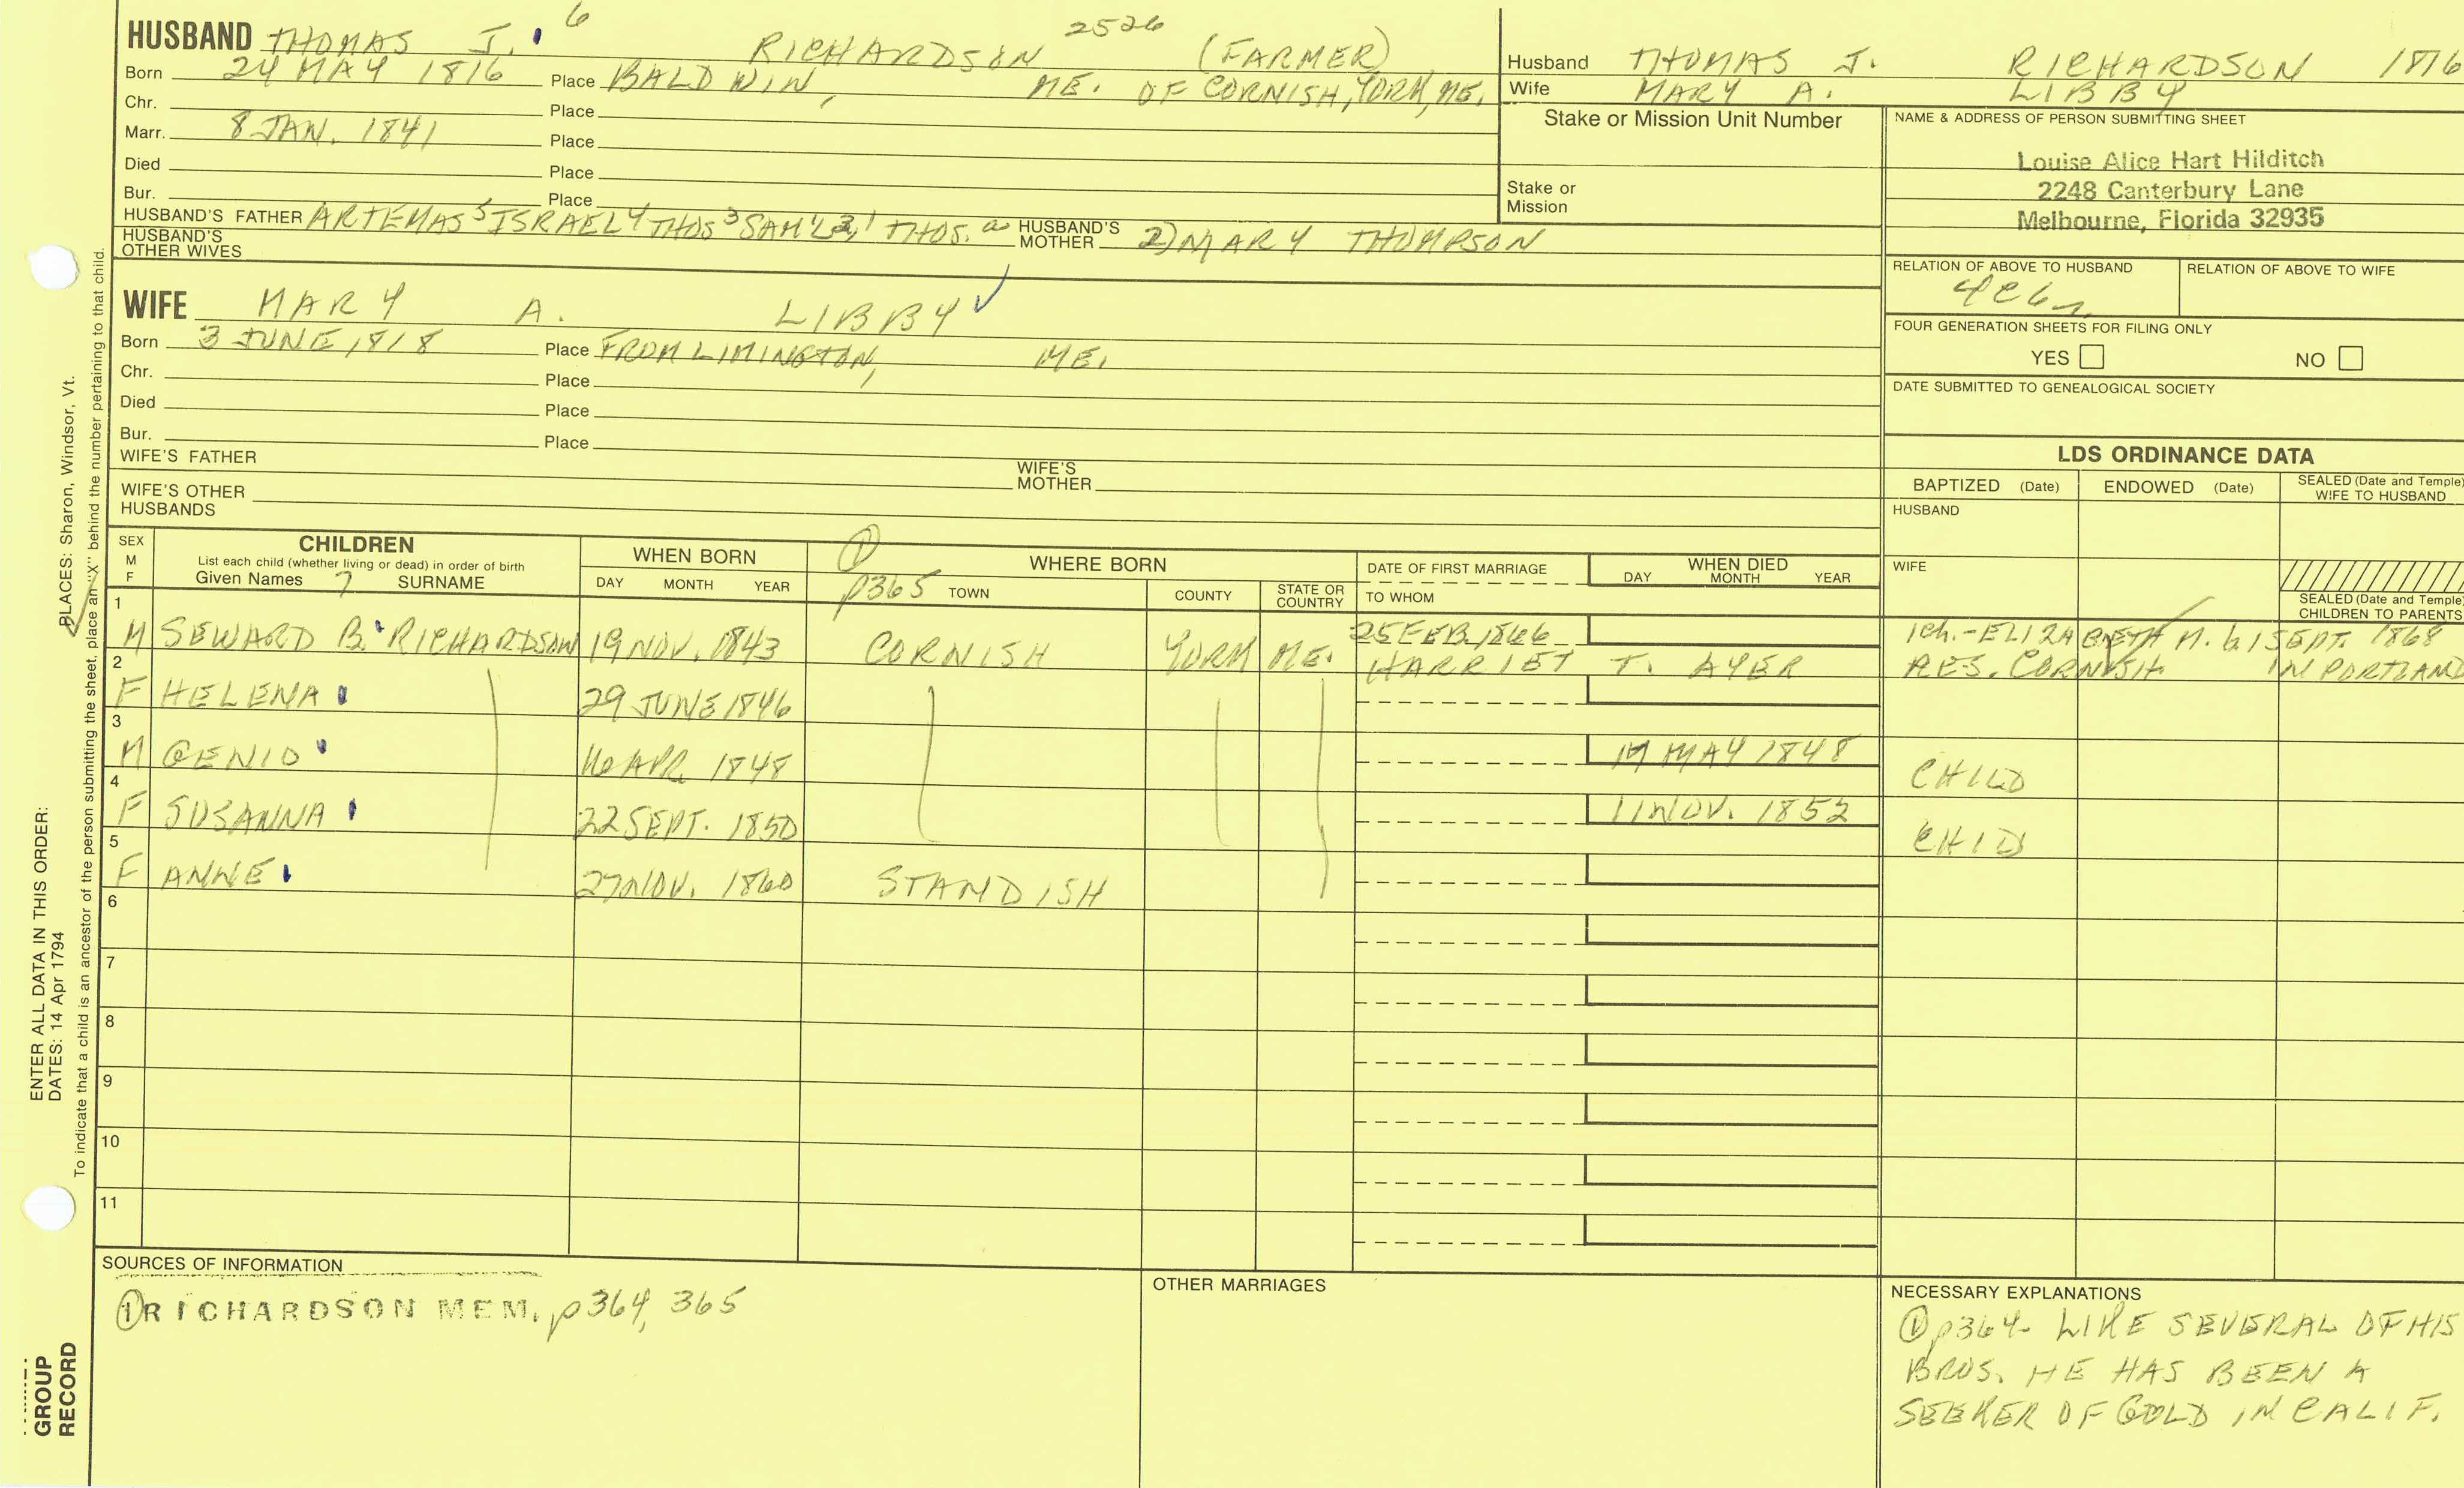 HUSBAND THOMAS J. 6 RICHARDSON 2526 (FARMER)
Born 24 MAY 1816 Place BALDWIN, ME. OF CORNISH, YORK, ME.
Chr. Place
Marr. 8 JAN. 1841 Place
Died Place
Bur. Place
HUSBAND'S FATHER ARTEMAS 5 ISRAEL 4 THOS 3 SAM'L 2, 1 THOS. HUSBAND'S MOTHER 2) MARY THOMPSON
HUSBAND'S OTHER WIVES
Husband THOMAS J. RICHARDSON 1816
Wife MARY A. LIBBY
Stake or Mission Unit Number
Stake or Mission
NAME & ADDRESS OF PERSON SUBMITTING SHEET
Louise Alice Hart Hilditch
2248 Canterbury Lane
Melbourne, Florida 32935
RELATION OF ABOVE TO HUSBAND RELATION OF ABOVE TO WIFE
FOUR GENERATION SHEETS FOR FILING ONLY
YES NO
DATE SUBMITTED TO GENEALOGICAL SOCIETY
WIFE MARY A. LIBBY
Born 3 JUNE 1818 Place FROM LIMINGTON, ME.
Chr. Place
Died Place
Bur. Place
WIFE'S FATHER WIFE'S MOTHER
WIFE'S OTHER HUSBANDS
LDS ORDINANCE DATA
BAPTIZED (Date) ENDOWED (Date) SEALED (Date and Temple) WIFE TO HUSBAND
HUSBAND
WIFE
SEALED (Date and Temple) CHILDREN TO PARENTS
SEX M F
CHILDREN
List each child (whether living or dead) in order of birth
Given Names 7 SURNAME
WHEN BORN
DAY MONTH YEAR
1 p365
WHERE BORN
TOWN COUNTY STATE OR COUNTRY
DATE OF FIRST MARRIAGE
TO WHOM
WHEN DIED
DAY MONTH YEAR
1 M SEWARD B. RICHARDSON 19 NOV. 1843 CORNISH YORK ME. 25 FEB. 1866 HARRIET T. AYER
1ch. - ELIZABETH M. b. 1 SEPT. 1868
RES. CORNISH IN PORTLAND
2 F HELENA 29 JUNE 1846
3 M GENIO 16 APR. 1848 MAY 1848 CHILD
4 F SUSANNA 22 SEPT. 1850 11 NOV. 1852 CHID
5 F ANNE 27 NOV. 1860 STANDISH
6
7
8
9
10
11
SOURCES OF INFORMATION
1 RICHARDSON MEM. p364, 365
OTHER MARRIAGES
NECESSARY EXPLANATIONS
1 p364- LIKE SEVERAL OF HIS
BROS. HE HAS BEEN A
SEEKER OF GOLD IN CALIF.
ENTER ALL DATA IN THIS ORDER:
DATES: 14 Apr 1794
PLACES: Sharon, Windsor, Vt.
To indicate that a child is an ancestor of the person submitting the sheet, place an "X" behind the number pertaining to that child.
GROUP
RECORD